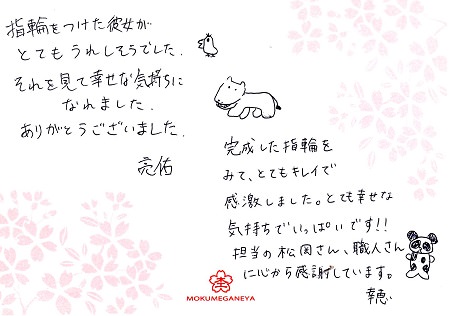 指輪をつけた彼女が
とてもうれしそうでした.
それを見て幸せな気持ちに
なれました.
ありがとうございました.
亮佑
完成した指輪を
みて、とてもキレイで
感激しました。とても幸せな
気持ちでいっぱいです!!
担当の松岡さん、職人さん
に心から感謝しています。
幸恵
MOKUMEGANEYA